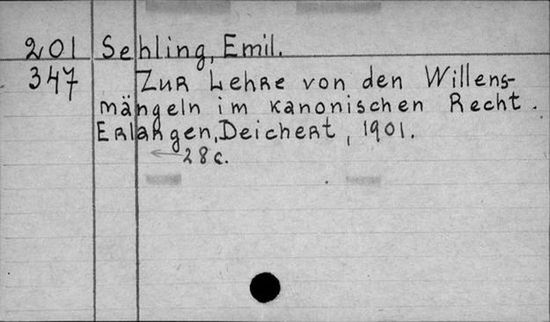 201 Sehling, Emil.
347 Zur Lehre von den Willens-
mängeln im kanonischen Recht.
Erlangen, Deichert, 1901.
28 c.